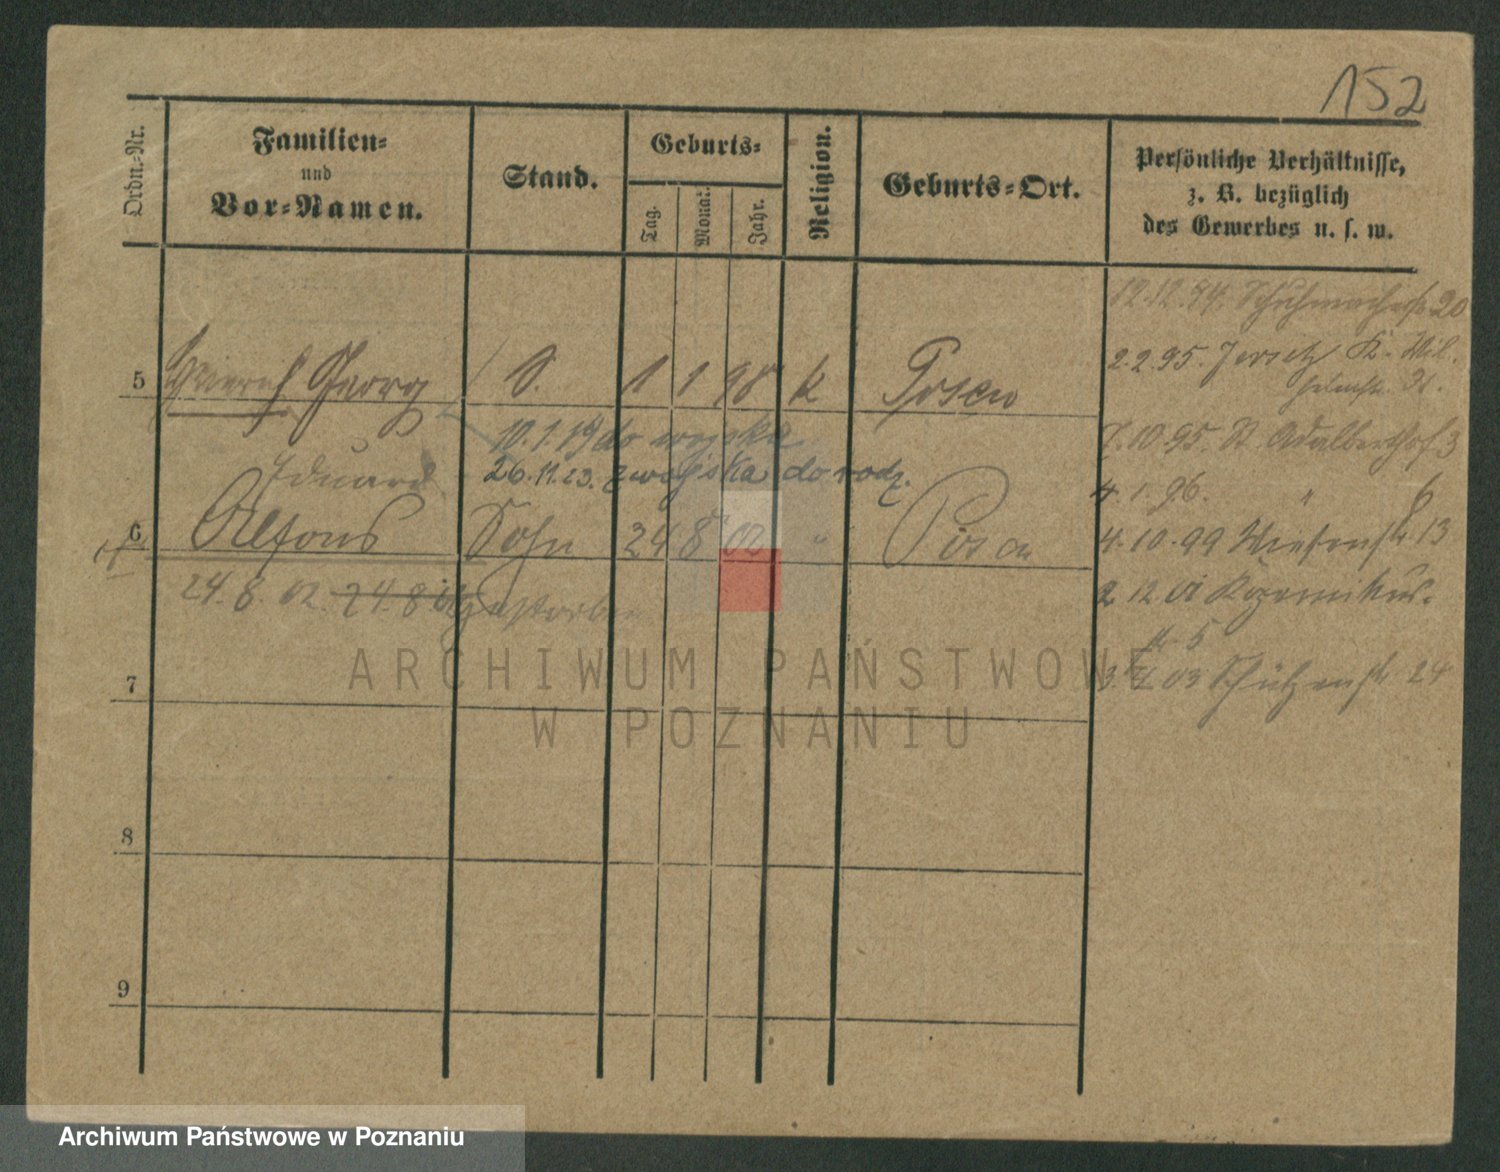 152
Ordn.-Nr.
Familien-
und
Vor-Namen.
Stand.
Geburts-
Tag.
Monat.
Jahr.
Religion.
Geburts-Ort.
Persönliche Verhältnisse,
z. B. bezüglich
des Gewerbes u. s. w.
12.12.94. Schuhmacherstr 20
2.2.95. Jersitz K. Wil.
5 Georg S. 1 1 98 k Posen
10.1.19 do wojska
7.10.95. St. Adalbertstr 3
Eduard
26.11.23. z wojska do rodz.
4.1.96. " 6
6 Alfons Sohn 24 8 02 " Posen
4.10.99 Wiesenstr. 13
24.8.02. 24.8 gestorben
2 12.01
5
7
03 Schützenstr 24
8
9
ARCHIWUM PAŃSTWOWE
W POZNANIU
Archiwum Państwowe w Poznaniu